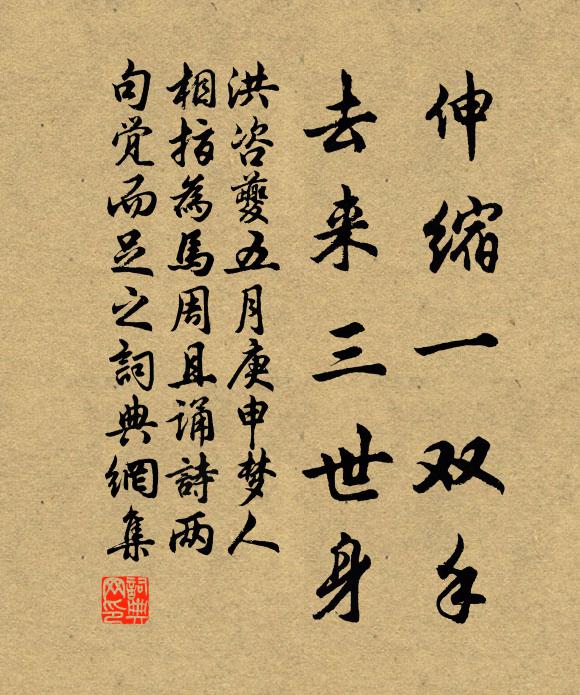 伸缩一双手
去来三世身
洪咨夔五月庚申梦人
相指为马周且诵詩两
句觉而足之詞典網集
詞典
网印